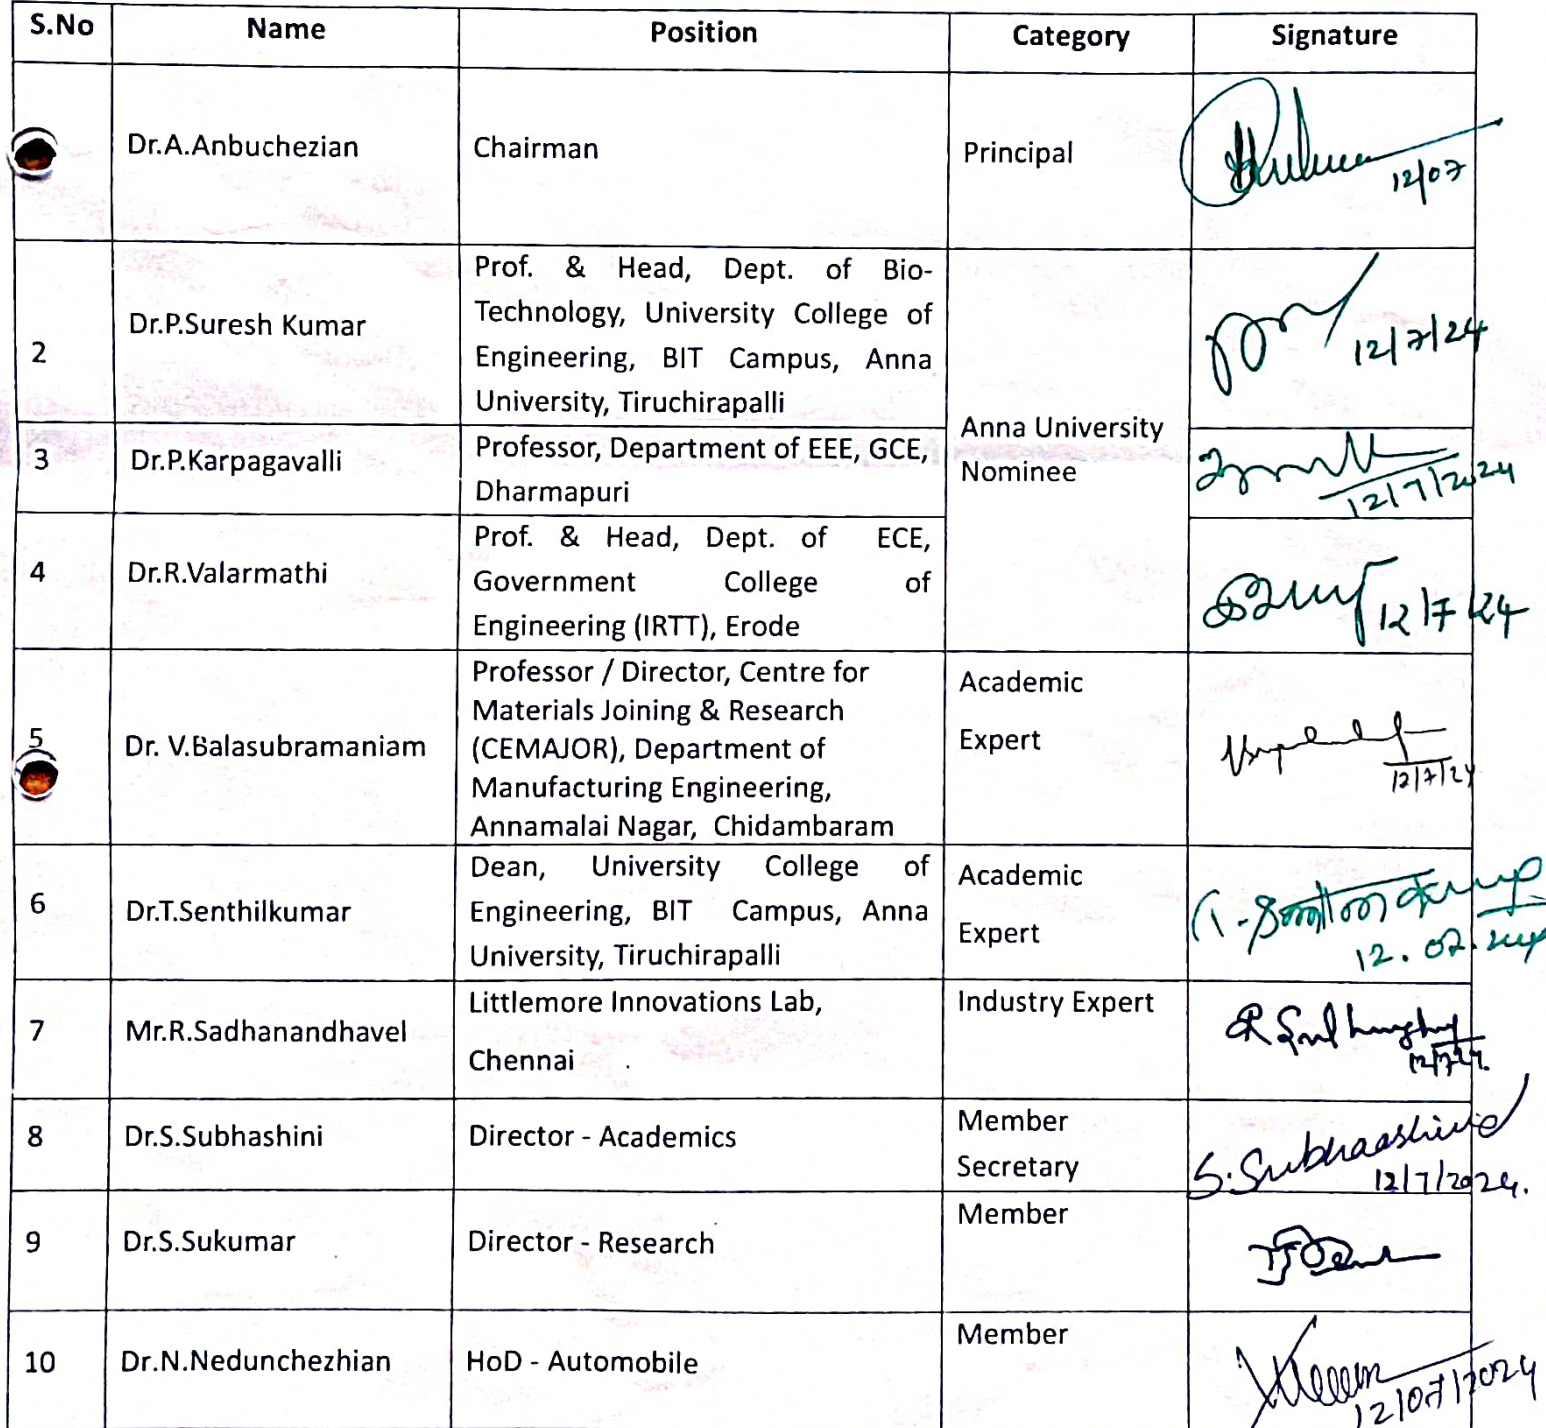 S.No Name Position Category Signature
Dr.A.Anbuchezian Chairman Principal
12/07
2 Dr.P.Suresh Kumar
Prof. & Head, Dept. of Bio-
Technology, University College of
Engineering, BIT Campus, Anna
University, Tiruchirapalli
Anna University
Nominee
12/7/24
3 Dr.P.Karpagavalli
Professor, Department of EEE, GCE,
Dharmapuri
12/7/2024
4 Dr.R.Valarmathi
Prof. & Head, Dept. of ECE,
Government College of
Engineering (IRTT), Erode
12/7/24
5 Dr. V.Balasubramaniam
Professor / Director, Centre for
Materials Joining & Research
(CEMAJOR), Department of
Manufacturing Engineering,
Annamalai Nagar, Chidambaram
Academic
Expert
12/7/24
6 Dr.T.Senthilkumar
Dean, University College of
Engineering, BIT Campus, Anna
University, Tiruchirapalli
Academic
Expert
7 Mr.R.Sadhanandhavel
Littlemore Innovations Lab,
Chennai
Industry Expert
12/7/24.
8 Dr.S.Subhashini Director - Academics
Member
Secretary
S. Subhaashini
12/7/2024.
9 Dr.S.Sukumar Director - Research Member
10 Dr.N.Nedunchezhian HoD - Automobile Member
12/07/2024